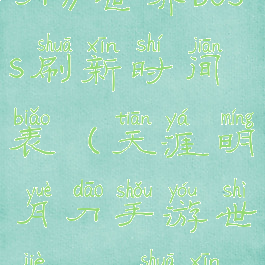 shuā xīn shí jiān
S 刷 新 时 间
biǎo tiān yá míng
表 （ 天 涯 明
yuè dāo shǒu yóu shì
月 刀 手 游 世
jiè shuā xīn